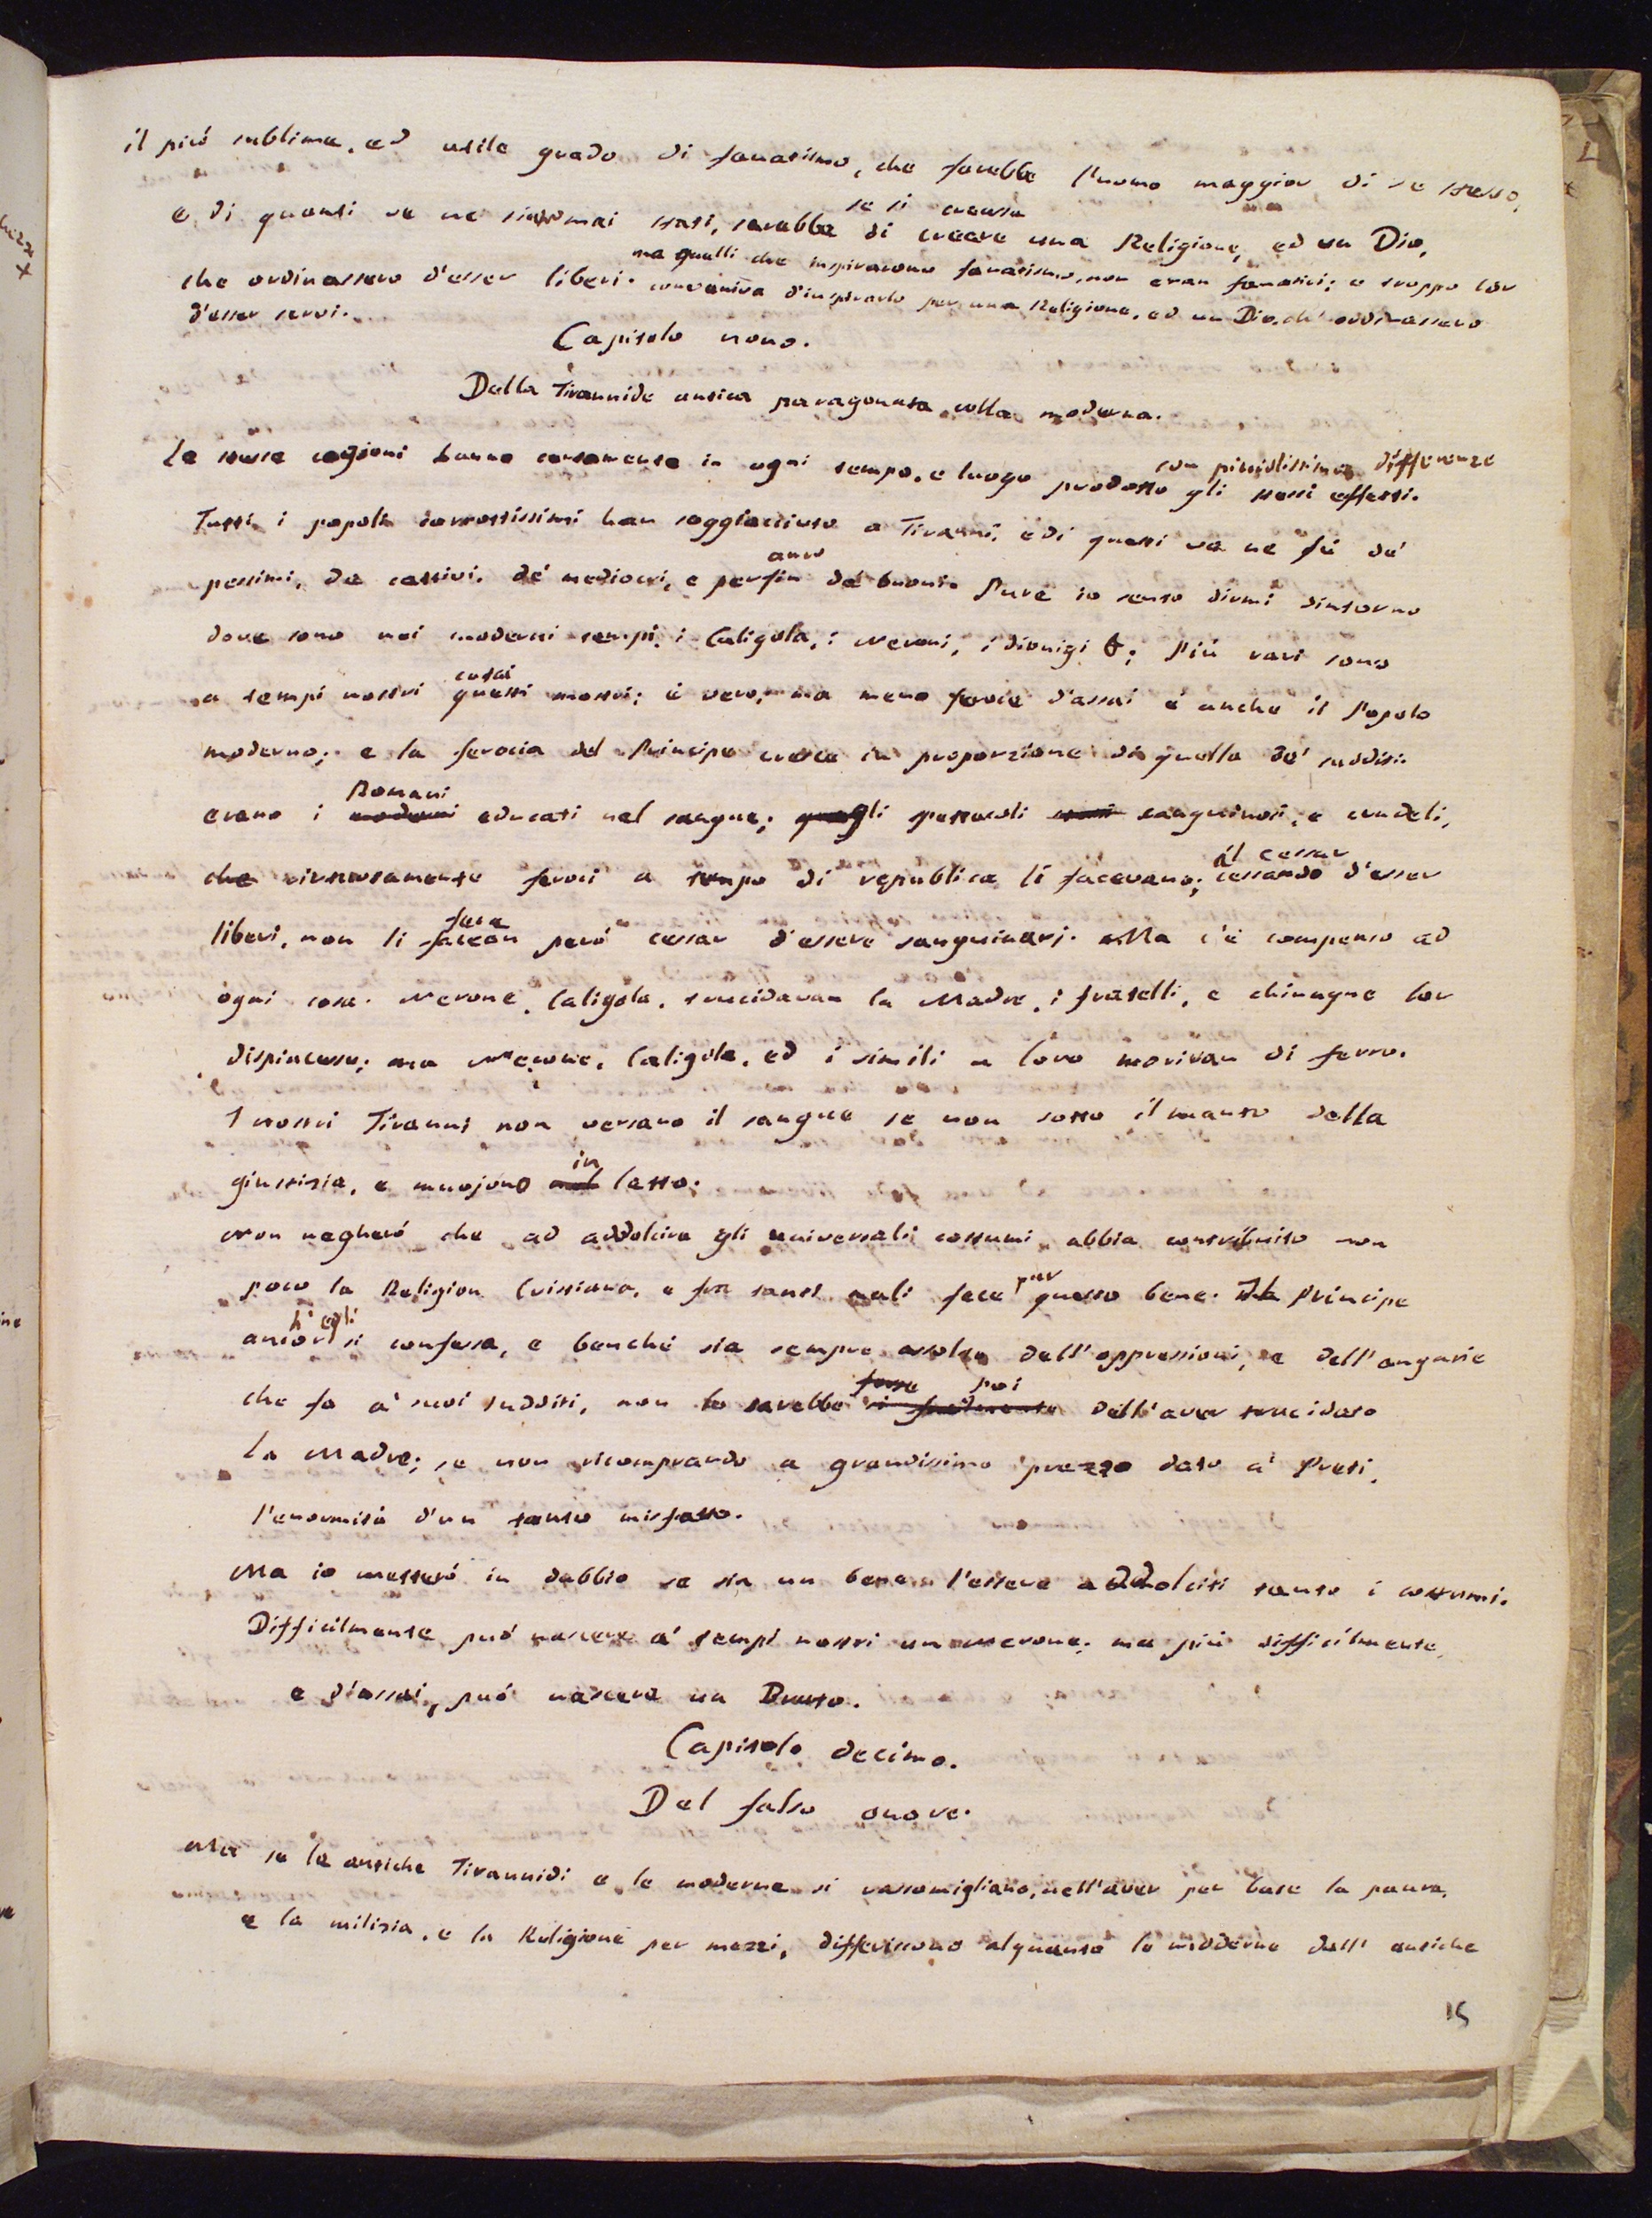 il più sublime, ed utile grado di fanatismo, che farebbe l'uomo maggior di se stesso,
se si creasse
e di quanti ve ne siano mai stati, sarebbe di creare una Religione, ed un Dio,
ma quelli che inspirarono fanatismo, non eran fanatici; e troppo lor
che ordinassero d'esser liberi. conveniva d'inspirarlo per una Religione, ed un Dio, ch' ordinassero
d'esser servi.
Capitolo nono.
Della Tirannide antica paragonata colla moderna.
con picciolissima differenze
Le stesse cagioni hanno certamente in ogni tempo, e luogo prodotto gli stessi effetti.
Tutti i popoli corrottissimi han soggiacciuto a Tiranni, e di questi ve ne fù de'
anco
pessimi, de cattivi, de' mediocri, e perfin de' buoni. Pure io sento dirmi dintorno
dove sono nei moderni tempi i Caligola, i Neroni, i Dionigi &; Più rari sono
cotai
a tempi nostri questi mostri; è vero; ma meno feroce d'assai è anche il Popolo
moderno; e la ferocia del Principe cresce in proporzione di quella de' sudditi.
Romani
erano i moderni educati nel sangue; quegli spettacoli sanguinosi, e crudeli,
il cessar
che virtuosamente feroci a tempo di republica li facevano; cessando d'esser
facea
liberi, non li facean però cessar d'essere sanguinarj. Ma c'è compenso ad
ogni cosa. Nerone, Caligola, trucidavan la Madre, i fratelli, e chiunque lor
dispiacesse; ma Nerone, Caligola, ed i simili a loro morivan di ferro.
I nostri Tiranni non versano il sangue se non sotto il manto della
in
giustizia, e muojono nel letto.
Non negherò che ad addolcire gli universali costumi abbia contribuito non
pur
poco la Religion Cristiana, e fra tanti mali fece questo bene. Il Principe
ch' egli
ancor si confessa, e benchè sia sempre assolto dell'oppressioni, e dell'angarie
forse poi
che fa a' suoi sudditi, non lo sarebbe dell'aver trucidato
la Madre; se non ricomprando a grandissimo prezzo dato a' Preti,
l'enormità d'un tanto misfatto.
Ma io metterò in dubbio se sia un bene l'essere addolciti tanto i costumi.
Difficilmente può nascere a' tempi nostri un Nerone; ma più difficilmente,
e d'assai, può nascere un Bruto.
Capitolo decimo.
Del falso onore.
Ma se le antiche Tirannidi e le moderne si rassomigliano, nell'aver per base la paura,
e la milizia, e la Religione per mezzi, differiscono alquanto le moderne dall' antiche
15